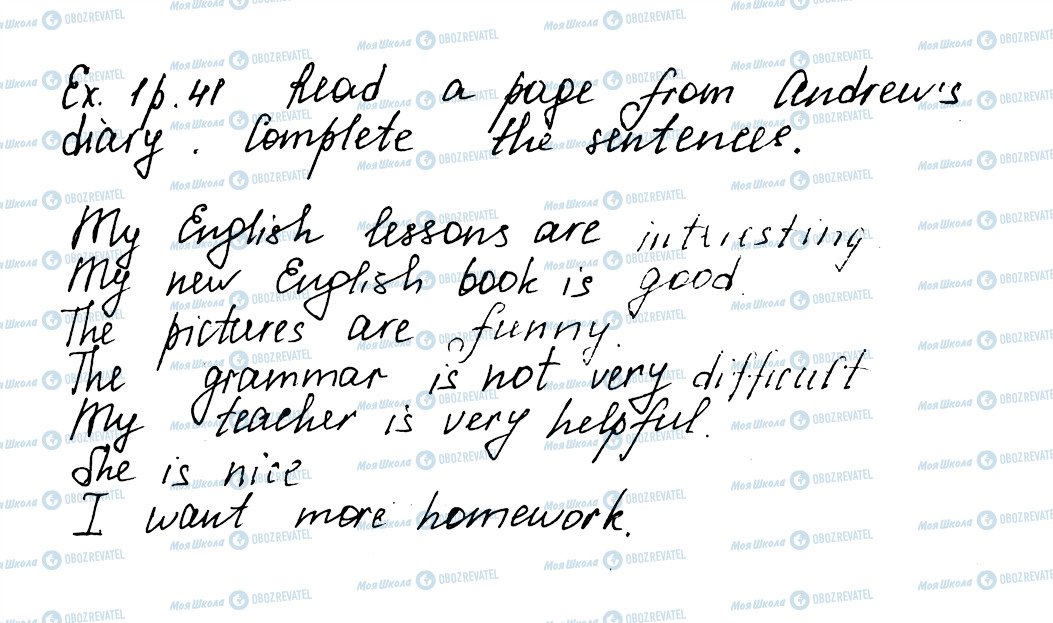 Ex. 1 p. 41 Read a page from Andrew's
diary. Complete the sentences.
My English lessons are intriesting.
My new English book is good.
The pictures are funny.
The grammar is not very difficult
My teacher is very helpful.
She is nice
I want more homework.